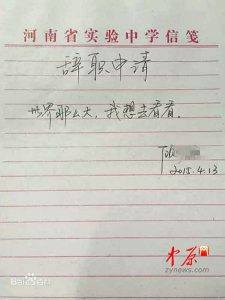 河南省实验中学信笺
辞职申请
世界那么大,我想去看看。
2015.4.13
中原
zynews.com
Bai百科